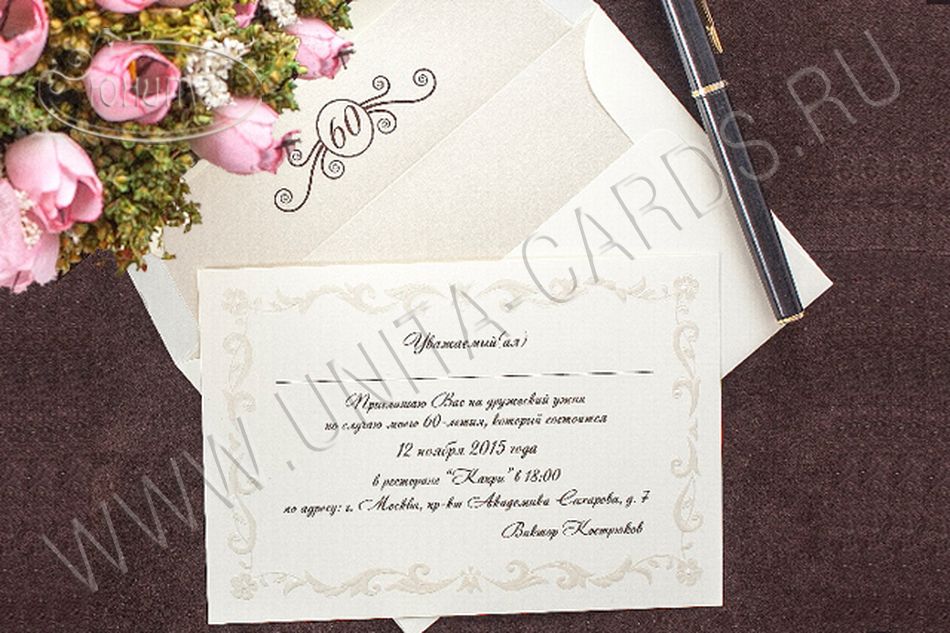 60
Уважаемый(ая)
Приглашаю Вас на дружеский ужин
по случаю моего 60-летия, который состоится
12 ноября 2015 года
в ресторане “Кахри” в 18:00
по адресу: г. Москва, пр-кт Академика Сахарова, д. 7
Виктор Кострюков
WWW.UNITA-CARDS.RU